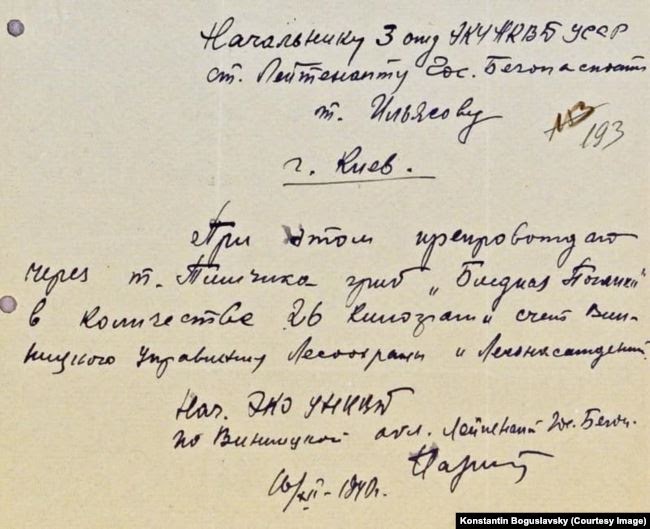 Начальнику 3 отд ЭКУ НКВД УССР
ст. Лейтенанту Гос. Безопасности
т. Ильясову
193
г. Киев.
При этом препровождаю
через т. гриб „Бледная Поганка"
в количестве 26 килограм и счет Вин-
ницкого Управления Лесоохраны и Лесонасаждений
Нач. ЭКО УНКВД
по Винницкой обл. Лейтенант Гос. Безоп.
-1940г.
Konstantin Boguslavsky (Courtesy Image)